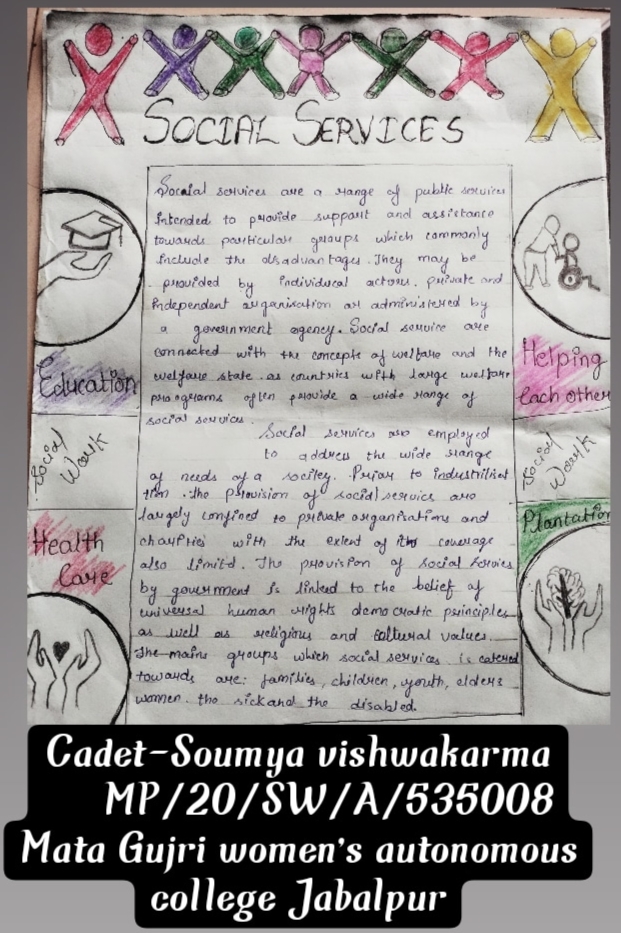 SOCIAL SERVICES
Socaial services are a range of public services
intended to provide support and assistance
towards particular groups which commonly
include the disadvantages. They may be
provided by individual actors. private and
independent organisation or administered by
a government agency. Social service are
connected with the concepts of welfare and the
welfare state as countries with large welfare
programs often provide a wide range of
social services.
Social services are employed
to address the wide range
of needs of a socitey. Prior to industrilisat
tion. the provision of social service are
largely confined to private organisations and
charities with the extent of its coverage
also limitd. The provision of social services
by government is linked to the belief of
universal human rights democratic principles
as well as religious and cultural values.
The mains groups which social services is catered
towards are: families, children, youth, elders
women. the sick and the disabled.
Education
Social
Work
Health
Care
Helping
each other
Social
Work
Plantation
Cadet-Soumya vishwakarma
MP/20/SW/A/535008
Mata Gujri women's autonomous
college Jabalpur